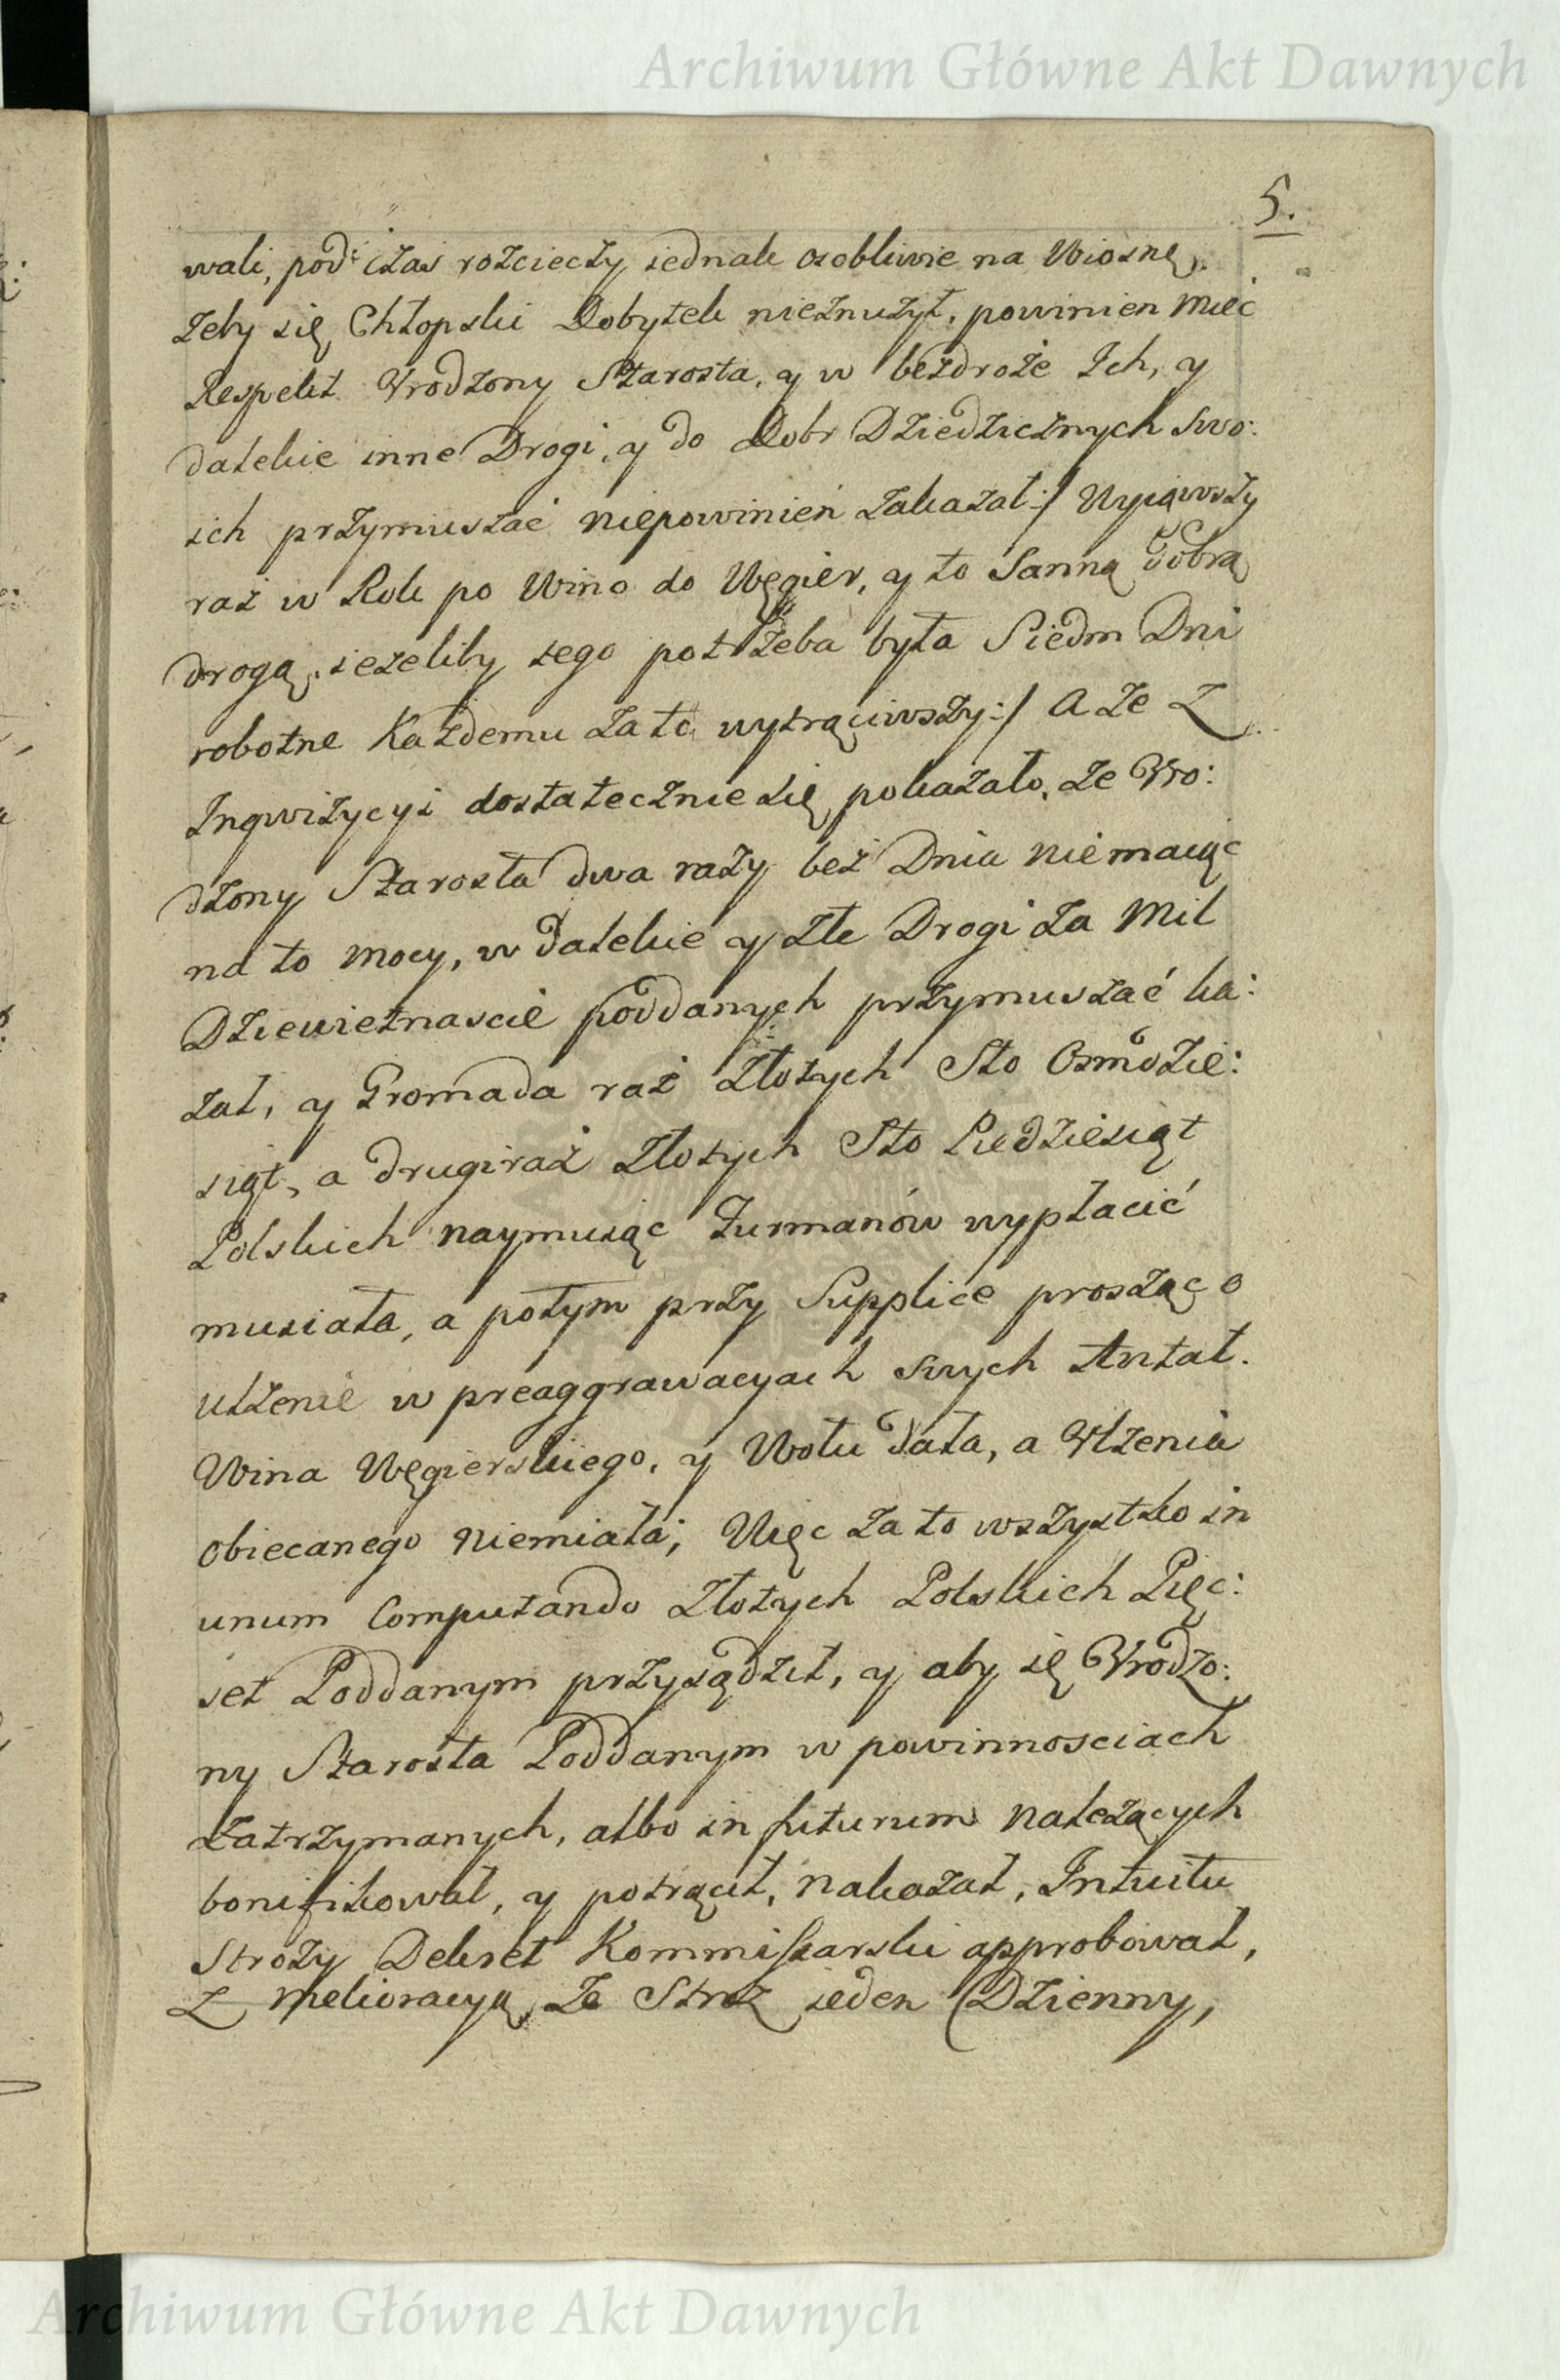 Archiwum Główne Akt Dawnych
5.
wali, pod czas rozcieczy iednak osobliwie na Wiosnę.
żeby się Chłopski Dobytek nieznużył, powinien mieć
Respekt Urodzony Starosta, y w bezdroże Ich, y
dalekie inne Drogi, y do Dobr Dziedzicznych swo:
ich przymuszać niepowinien zakazał :/ Wyiąwszy
raz w Rok po Wino do Węgier, y to Sanną dobrą
drogą, ieżeliby tego potrzeba była Siedm Dni
robotne Każdemu za to wytrąciwszy :/ A że z
Inqwizycyi dostatecznie się pokazało, że Uro:
dzony Starosta dwa razy bez Dnia niemaiąc
na to mocy, w dalekie y złe Drogi za Mil
Dziewietnascie poddanych przymuszać ka:
zał, y Gromada raz Złotych Sto Osmdzie:
siąt, a drugi raz Złotych Sto Piedziesiąt
Polskich naymuiąc Furmanów wypłacić
musiała, a potym przy Supplice prosząc o
ulżenie w preaggrawacyach swych Antał.
Wina Węgierskiego, y Wołu dała, a Ulżenia
obiecanego niemiała; Więc za to wszystko in
unum Computando Złotych Polskich Pięc:
set Poddanym przysądził, y aby się Urodzo:
ny Starosta Poddanym w powinnosciach
Zatrzymanych, albo in futurum należących
bonifikował, y potrącił, nakazał, Intuitu
Stroży Dekret Kommissarski approbował,
z melioracyą, że Stroż ieden Dzienny,
Archiwum Główne Akt Dawnych